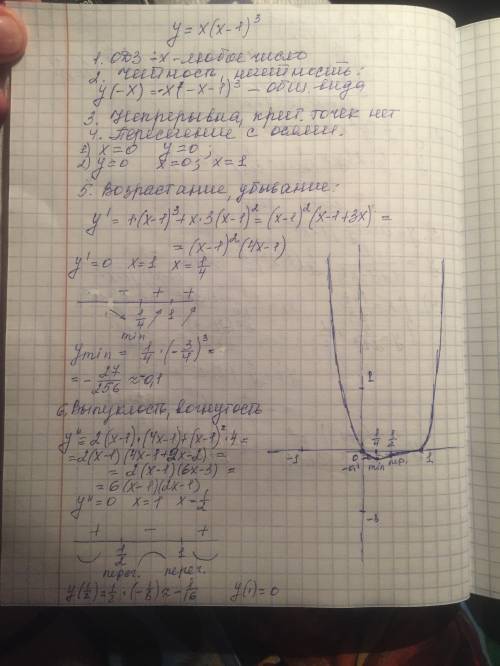 y = x(x-1)³
1. ОДЗ ÷ x - любое число
2. Четность, нечетность:
y(-x) = -x(-x-1)³ - общ. вида
3. Непрерывна, крит. точек нет
4. Пересечение с осями.
1) x=0 y=0;
2) y=0 x=0; x=1
5. Возрастание, убывание:
y' = 1·(x-1)³+x·3(x-1)² = (x-1)²(x-1+3x) =
= (x-1)²(4x-1)
y'=0 x=1 x=1/4
- + +
1/4 1
min
ymin = 1/4·(-3/4)³ =
= -27/256 ≈ -0,1
6. Выпуклость, вогнутость
y'' = 2(x-1)·(4x-1)+(x-1)²·4 =
= 2(x-1)(4x-1+2x-2) =
= 2(x-1)(6x-3) =
= 6(x-1)(2x-1)
y''=0 x=1 x=1/2
+ - +
1/2 1
перег. перег.
y(1/2)=1/2·(-1/8)=-1/16 y(1)=0
1
-1 0 1/4 1/2 1
-0,1 min пер.
-1